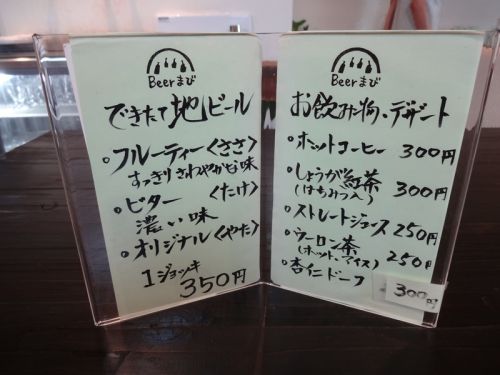 Beerまび
できたて地ビール
フルーティー<ささ>
すっきりさわやかな味
ビター <たけ>
濃い味
オリジナル<やた>
1ジョッキ
350円
Beerまび
お飲み物、デザート
ホットコーヒー 300円
しょうが紅茶
(はちみつ入) 300円
ストレートジュース 250円
ウーロン茶
(ホット、アイス) 250円
杏仁ドーフ 300円